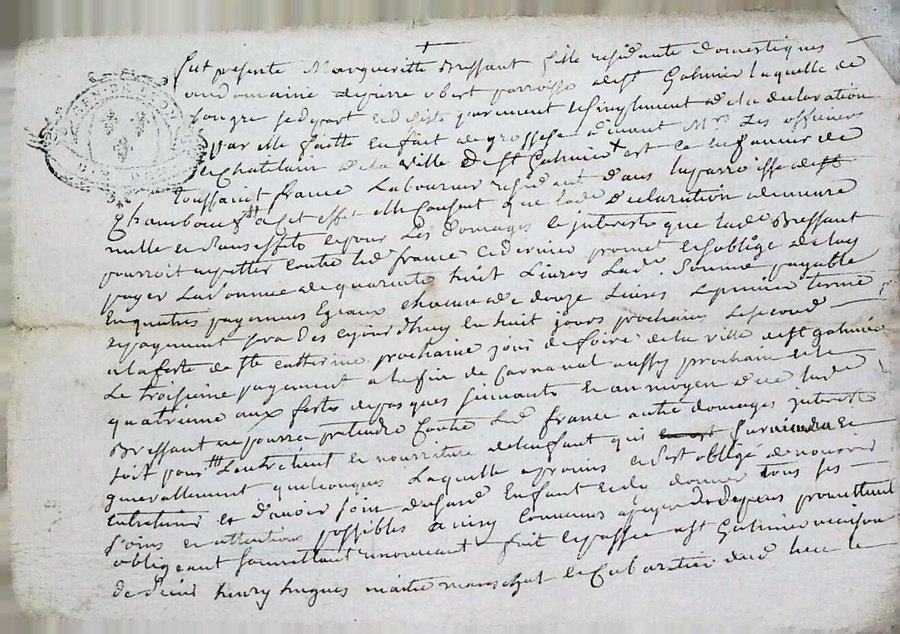 GEN DE
fut presente Margueritte Bressant fille residante domestiques
au domaine de pierre obert parroisse de st Galmier laquelle de
son gre se depart et desiste purement et simplement de la declaration
par elle faitte en fait de grossesse devant Mrs Les officiers
de Chatelain de la ville de st Galmier est ce en faveur de
toussaint france Laboureur residant dans la parroisse de st
Chambouf a cet effet elle consent que lade declaration demeure
nulle et sans effets et pour Les domages et interests que lade Bressant
pourroit repetter contre led france ce dernier promet et soblige de luy
payer La somme de quarente huit Livres Lade somme payable
en quatres payemens egaux chacun de douze Livres Le premier terme
et payement sera des ejourdhuy en huit jours prochains Le second
a la feste de ste catterine prochaine jour de foire de la ville de st galmier
Le troisieme payement a la fin de Carnaval aussy prochain et le
quatrieme aux festes de paques suivants et au moyen de ce lade
Bressant ne pourra pretendre contre Led france autre domages interests
soit pour L'entretient et nourriture de lenfant qui surviendra et
generallement quelconques Laquelle a promis et s'est obligé de nourrir
entretenir et d'avoir soin de sond Enfant et de luy donner tous ses
soins et attentions possibles ainsy convenus a peyne de depens promettant
obligeant soumettant renoncant fait et passé a st Galmier maison
de sieur henry hugues maitre mareschal et Cabaretier dud lieu le